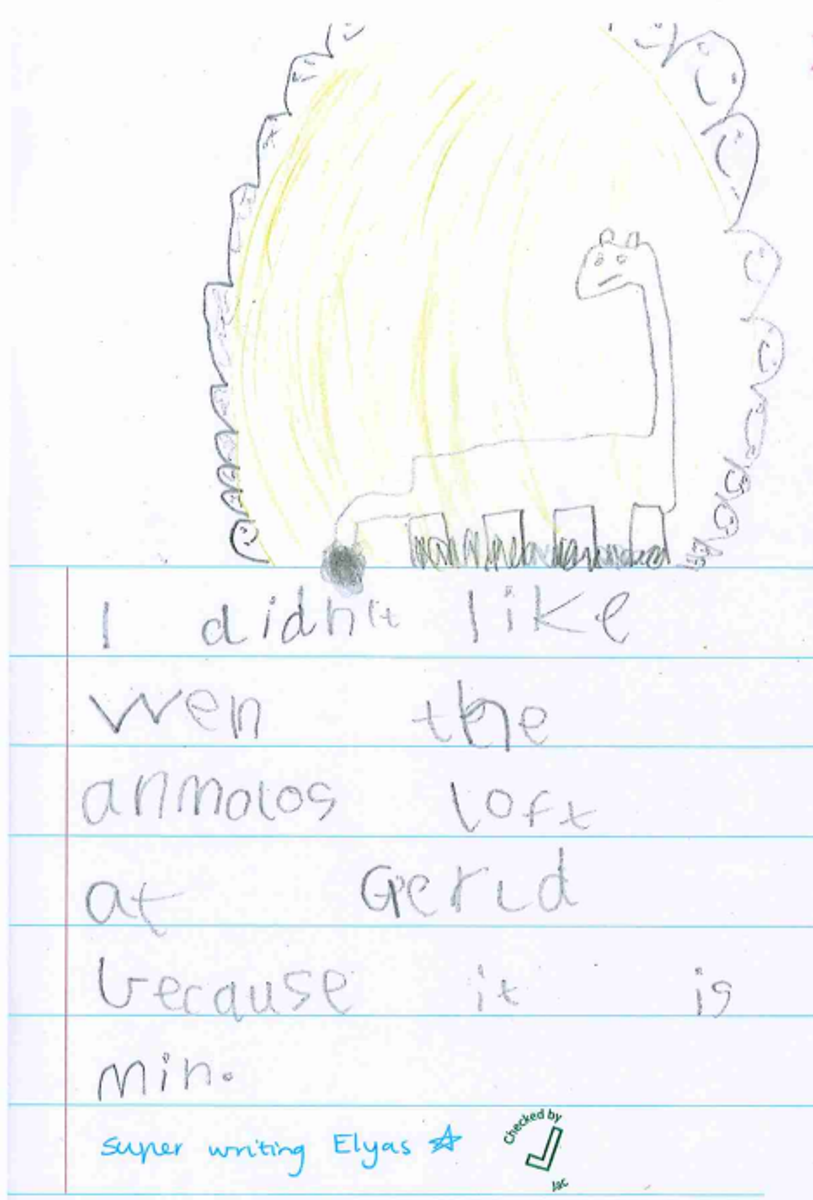 I didn't like
wen the
anmolos loft
at Gerld
because it is
min.
super writing Elyas
Checked by
Jac